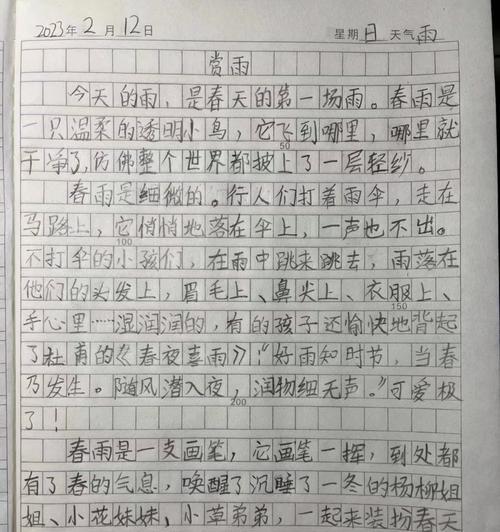 2023年2月12日 星期日 天气雨
赏雨
今天的雨，是春天的第一场雨。春雨是
一只温柔的透明小鸟，它飞到哪里，哪里就
干净了，仿佛整个世界都披上了一层轻纱。
50
春雨是细微的。行人们打着雨伞，走在
马路上，它悄悄地落在伞上，一声也不出。
100
不打伞的小孩们，在雨中跳来跳去，雨落在
他们的头发上，眉毛上、鼻尖上、衣服上、
150
手心里……湿润润的，有的孩子还愉快地背起
了杜甫的《春夜喜雨》！“好雨知时节，当春
乃发生。随风潜入夜，润物细无声。”可爱极
200
了！
春雨是一支画笔，它画笔一挥，到处都
有了春的气息，唤醒了沉睡了一冬的杨柳姐
姐、小花妹妹，小草弟弟，一起来装扮春天